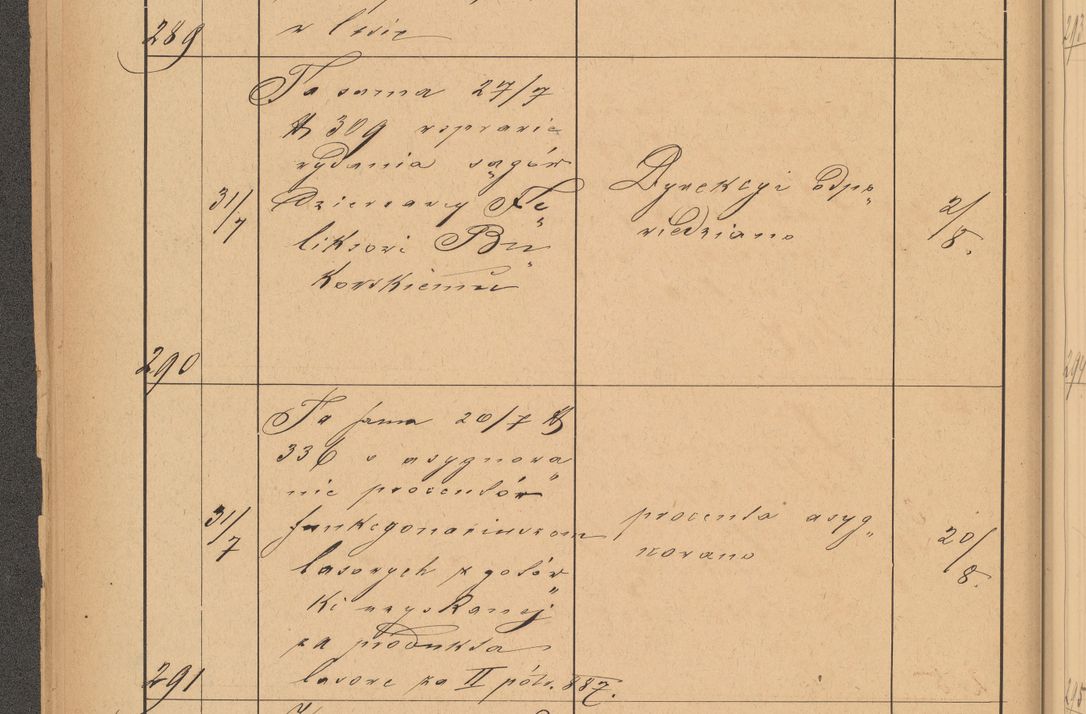 289
w lesie
Ta sama 27/7
N 309 w sprawie
wydania sągów
31/7
dzierżawcy Fe„
liksowi Bu„
kowskiemu
Dyrekcyi odpo„
wiedziano
2/8.
290
Ta sama 20/7 N
336 o asygnowa„
nie procentów
31/7
funkcyonariuszom
lasowych z gotów„
ki uzyskanej
za produkta
lasowe za II półr. 887.
procenta asyg„
nowano
20/8.
291
293
294
295